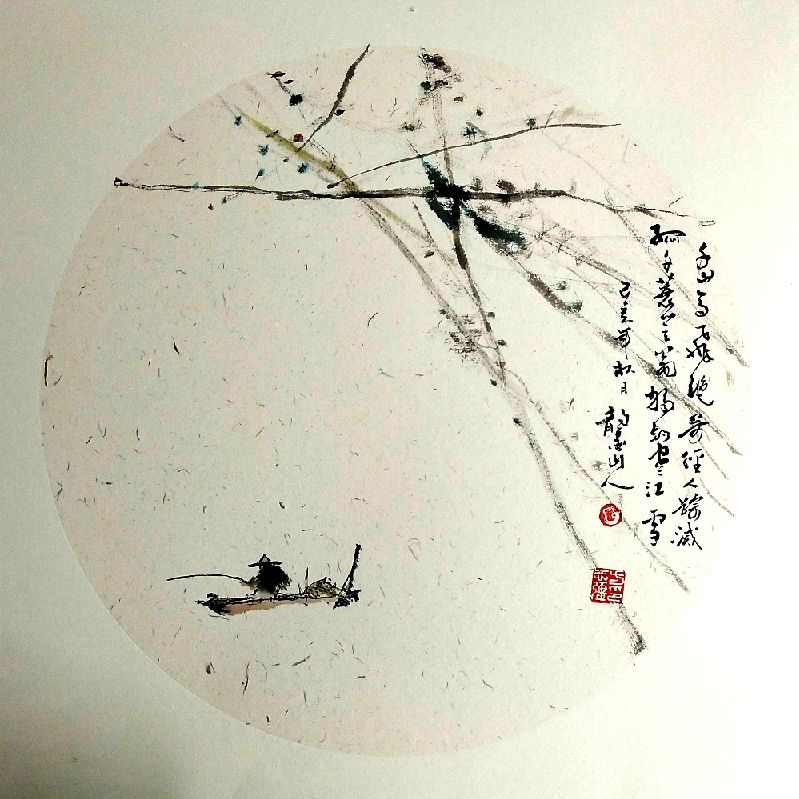 千山鳥飛絕萬徑人踪滅
孤舟蓑笠翁獨釣寒江雪
己亥年秋日
山人